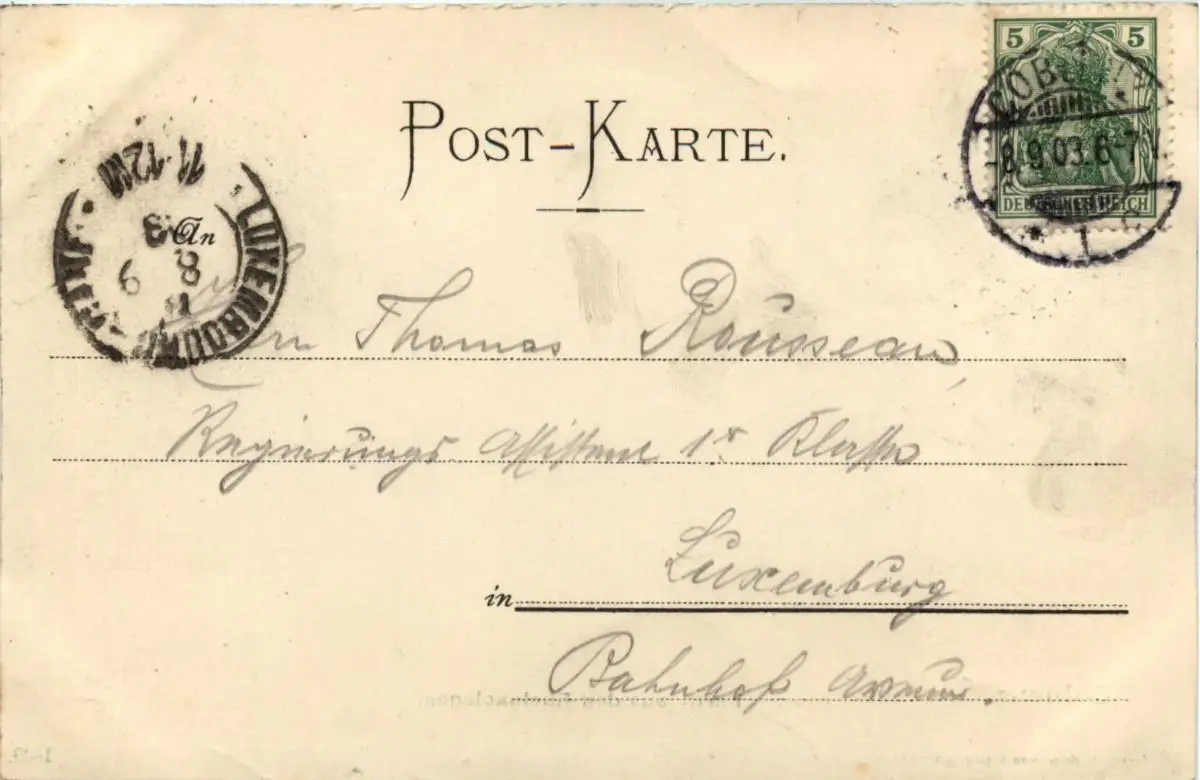 POST-KARTE.
5 5
DEUTSCHES REICH
-8.9.03.6-7
* 1 c
LUXEMBOURG
11-12M
8 9
3
An
Herrn Thomas Rousseau,
Regierungs Assistent 1r Klasse
in Luxemburg
Bahnhof Avenue.